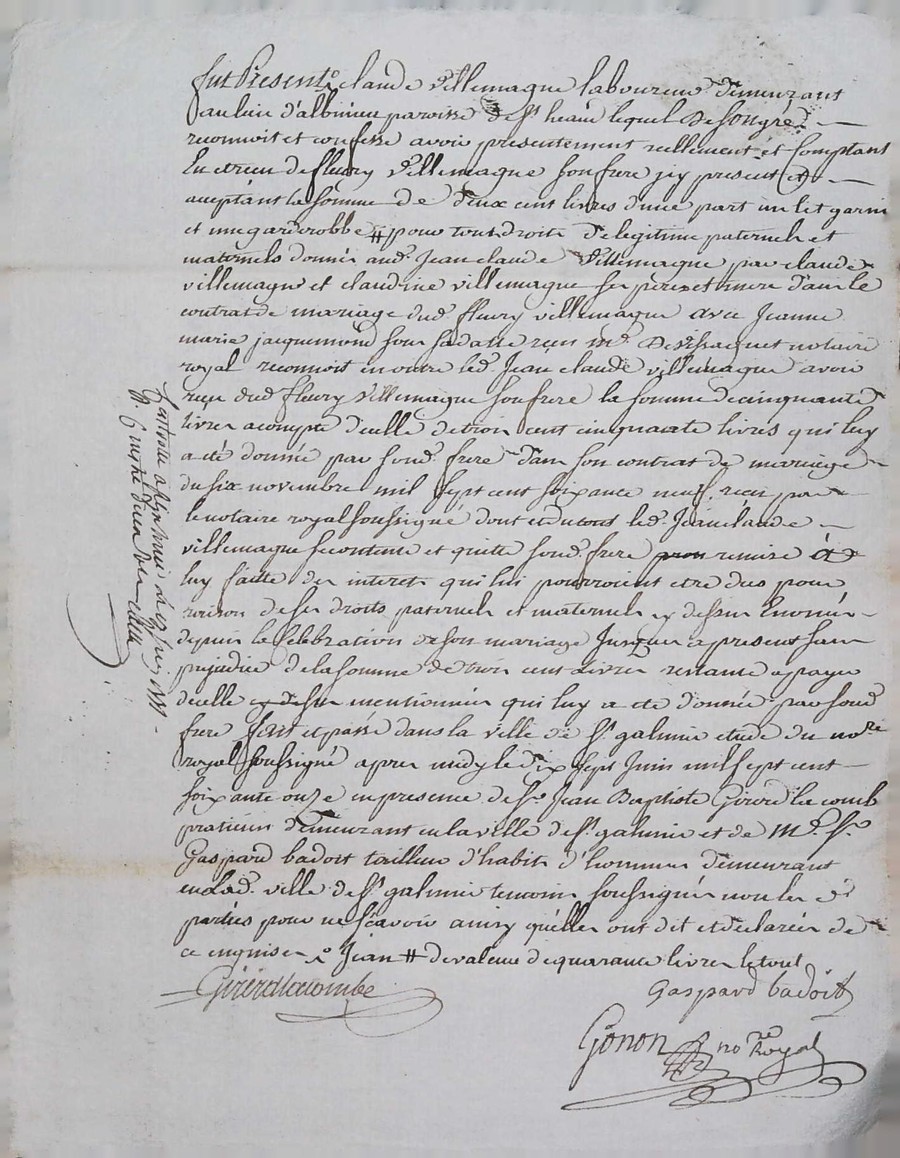 fut Present claude Villemagne laboureur demeurant
au lieu d'albinieu paroisse de st heand lequel De son gré
reconnoit et confesse avoir presentement reellement et comptant
heu et receu de fleury Villemagne son frere icy present et
aceptant la somme de deux cent livres d'une part un lit garni
et une garderobbe # pour tout droits de legitime paternels et
maternels donnés aud. Jean claude Villemagne par claude
villemagne et claudine villemagne ses pere et mere dans le
contrat de mariage dud. fleury villemagne avec Jeanne
marie jacquemond sous sa datte receu me notaire
royal reconnoit en outre led. Jean claude villemagne avoir
reçu dud fleury Villemagne son frere la somme de cinquante
livres a compte d'icelle de trois cent cinquante livres qui luy
a eté donnée par sond. frere dans son contrat de mariage
du six novembre mil sept cent soixante neuf receu par
le notaire royal soussigné dont et du tout led. Jean claude
villemagne se contente et quitte sond. frere remise et
luy faitte des interets qui lui pourroient etre dus pour
raison de ses droits paternels et maternels cy dessus Enoncés
depuis la Celebration de son mariage Jusques a present sans
prejudice de la somme de trois cent Livres restante a payer
d'icelle cy dessus mentionnée qui luy a eté donnée par sond
frere fait et passé dans la ville de st galmier etude du nore
royal soussigné apres midy le dix sept Juin mil sept cent
soixante onze en presence de sr Jean Baptiste Girard la comb
praticien demeurant en la ville de st galmier et de Me sr
Gaspard badoit tailleur d'habits d'hommes demeurant
en lad. ville de st galmier temoins soussignés non les d.
parties pour ne sçavoir ainsy qu'elles ont dit et declarées de
ce enquises Jean # de valeur de quarante livres le tout
Girard lacombe
Gaspard badoit
Gonon nore Royal